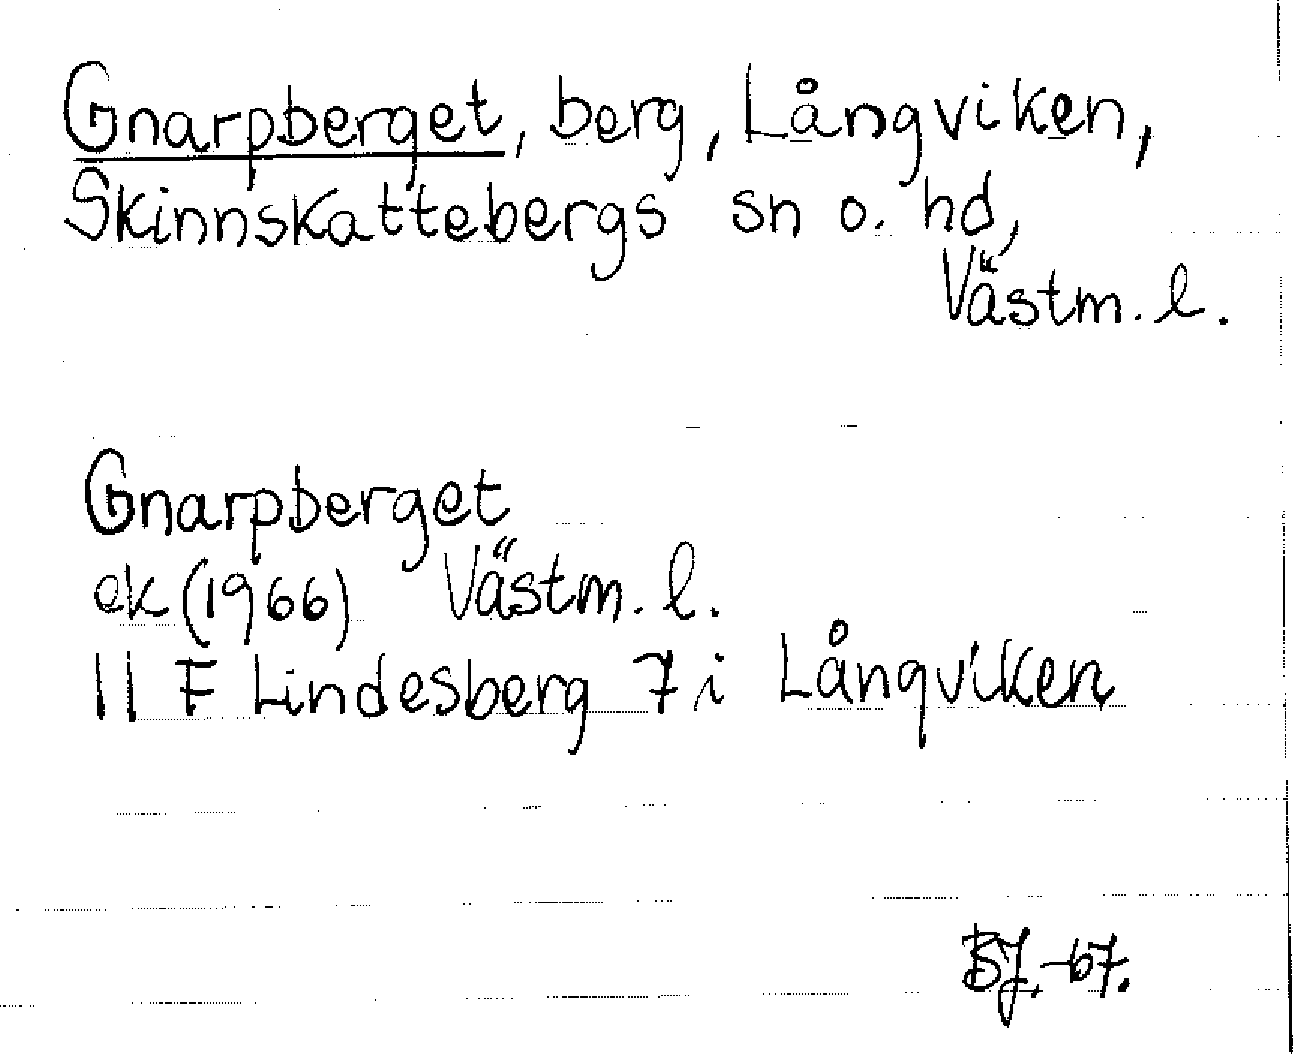 Gnarpberget, berg, Långviken,
Skinnskattebergs sn o. hd,
Västm. l.
Gnarpberget
ek (1966) Västm. l.
11 F Lindesberg 7 i Långviken
BJ. -67.